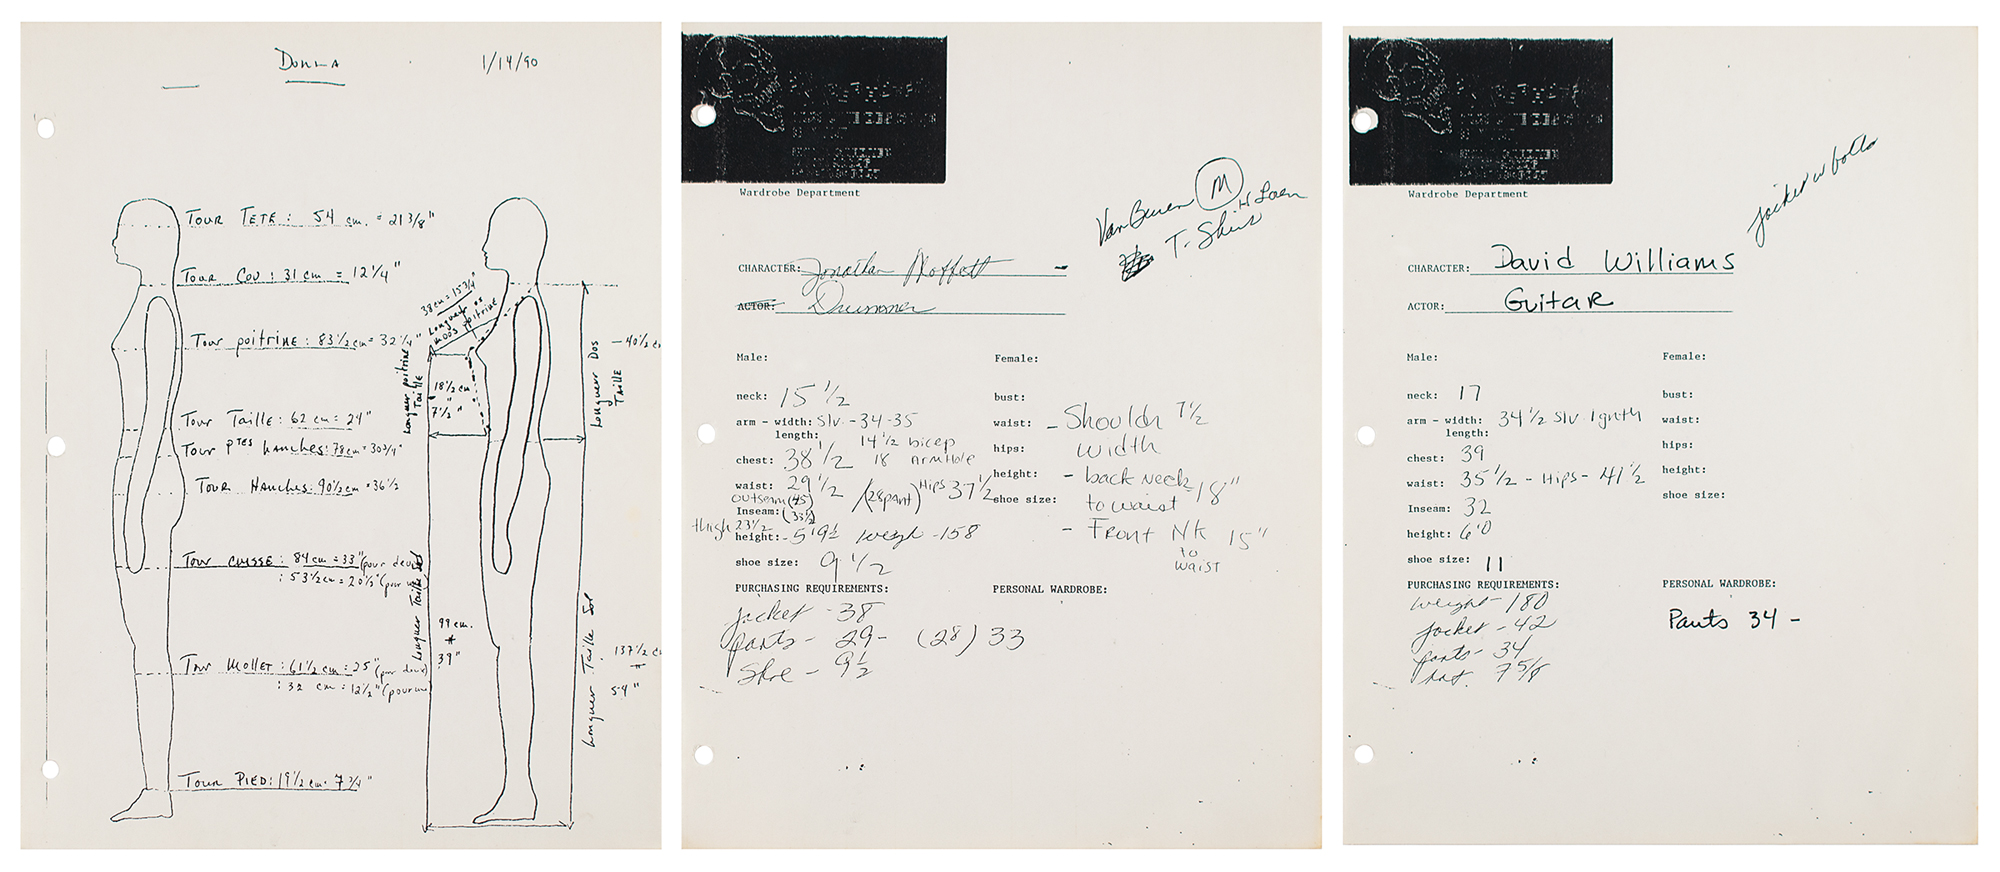 Donna
1/14/90
Tour Tete: 54 cm. = 21 3/8"
Tour Cou: 31 cm = 12 1/4"
38 cm = 15 3/4"
Tour poitrine: 83 1/2 cm = 32 1/4"
Longueur poitrine Taille
18 1/2 cm
7 1/2"
Longueur Dos Taille
40 1/2 c
Tour Taille: 62 cm = 24"
Tour Ptes hanches: 78 cm = 30 3/4"
Tour Hanches: 90 1/2 cm = 36 1/2
Tour cuisse: 84 cm = 33" (pour deux
: 53 1/2 cm = 20 1/2" (pour
Longueur Taille Sol
99 cm.
39"
Longueur Taille Sol
137 1/2 c
54"
Tour Mollet: 61 1/2 cm = 25" (pour deux)
: 32 cm = 12 1/2" (pour
Tour Pied: 19 1/2 cm = 7 3/4"
Wardrobe Department
Van Buren M
T-Shirt
CHARACTER: Jonathan Moffett
ACTOR: Drummer
Male:
Female:
neck: 15 1/2
bust:
arm - width: Slv - 34-35
waist: - Shouldr 7 1/2
length: 14 1/2 bicep
width
18 Armhole
chest: 38 1/2
hips:
waist: 29 1/2 /(28 pant) Hips 37 1/2
height: - back neck
to waist 18"
outseam (45)
shoe size:
Inseam: (33 1/2)
thigh 23 1/2
height: - 5'9 1/2 weigh - 158
- Front NK 15"
to
waist
shoe size: 9 1/2
PURCHASING REQUIREMENTS:
PERSONAL WARDROBE:
jacket - 38
pants - 29 - (28) 33
Shoe - 9 1/2
Wardrobe Department
jacket w
CHARACTER: David Williams
ACTOR: Guitar
Male:
Female:
neck: 17
bust:
arm - width: 34 1/2 Slv lgnth
waist:
length:
hips:
chest: 39
height:
waist: 35 1/2 - Hips - 41 1/2
shoe size:
Inseam: 32
height: 6'0
shoe size: 11
PURCHASING REQUIREMENTS:
PERSONAL WARDROBE:
weight - 180
Pants 34 -
jacket - 42
pants - 34
hat. 7 5/8